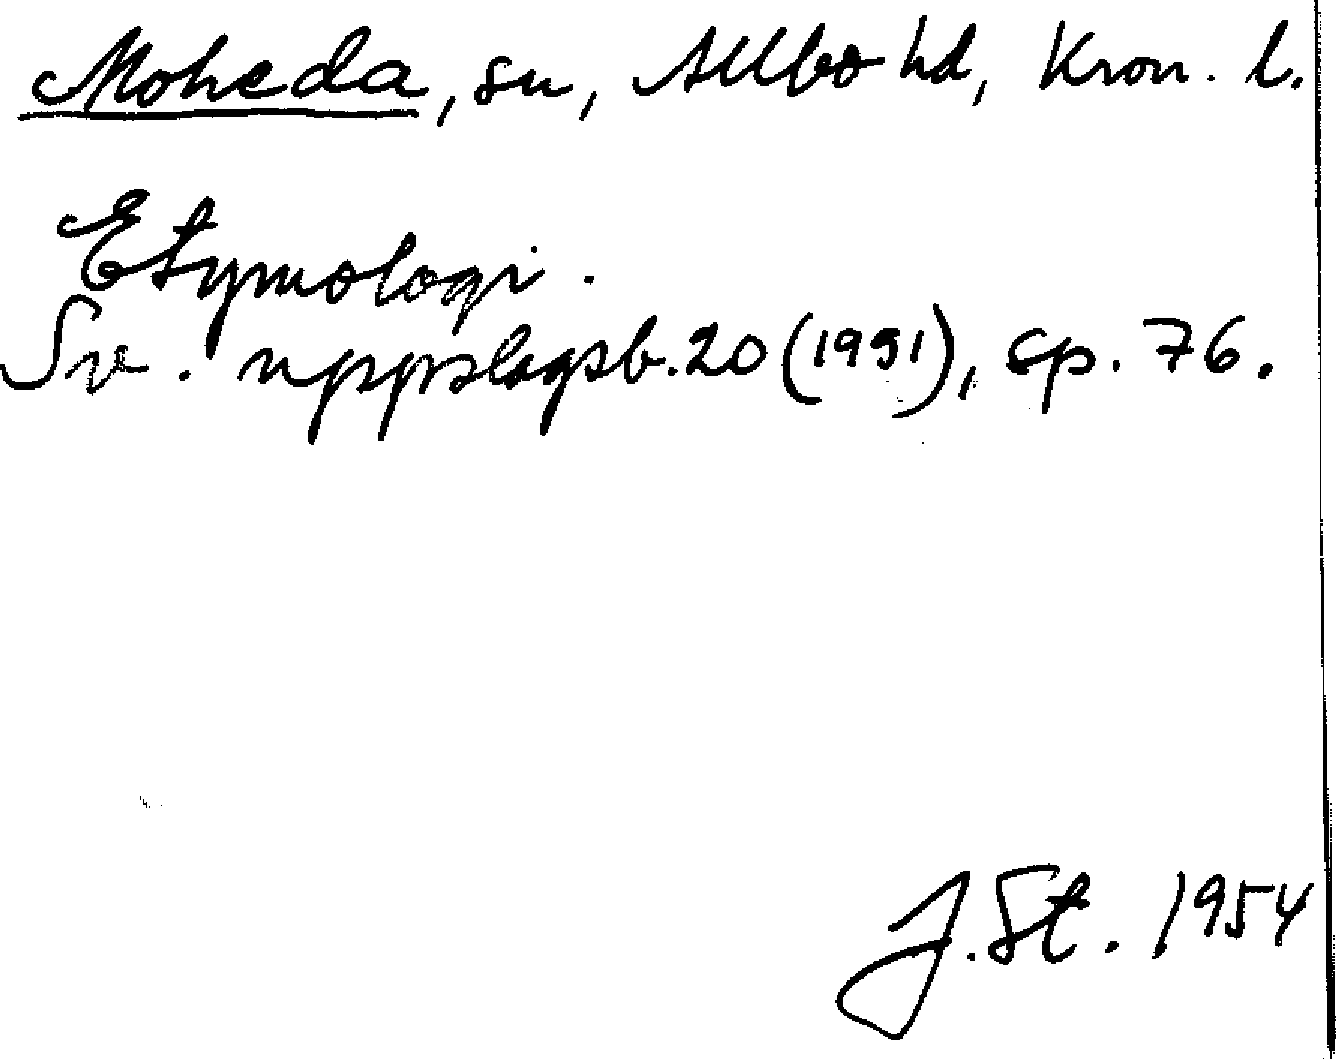 Moheda, sn, Allbo hd, Kron. l.
Etymologi.
Sv. uppslagsb. 20 (1951), sp. 76.
J. St. 1954